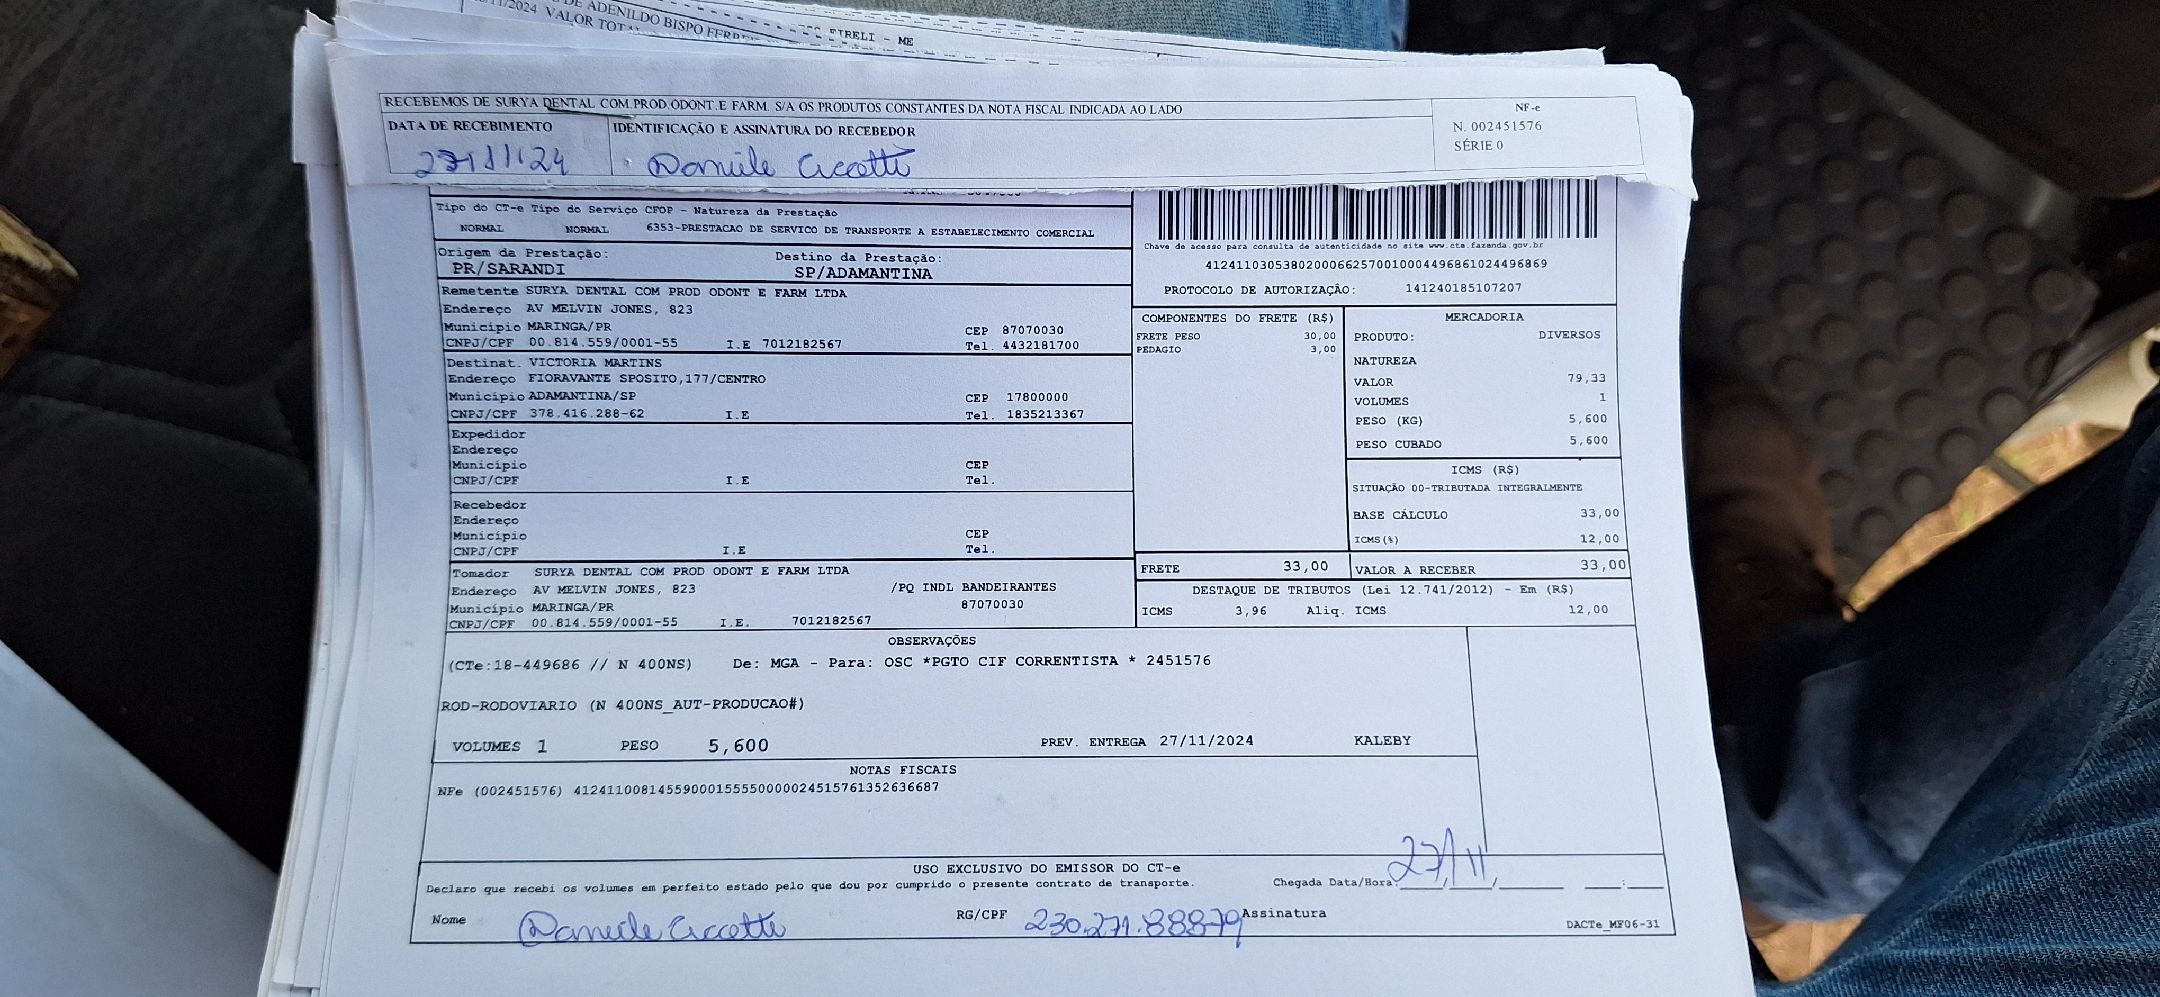 DE ADENILDO BISPO
/11/2024 VALOR TOTAL
EIRELI - ME
RECEBEMOS DE SURYA DENTAL COM.PROD.ODONT.E FARM. S/A OS PRODUTOS CONSTANTES DA NOTA FISCAL INDICADA AO LADO
DATA DE RECEBIMENTO
IDENTIFICAÇÃO E ASSINATURA DO RECEBEDOR
NF-e
N. 002451576
SÉRIE 0
27/11/24
Daniele Ciccotti
Tipo do CT-e Tipo do Serviço CFOP - Natureza da Prestação
NORMAL NORMAL 6353-PRESTACAO DE SERVICO DE TRANSPORTE A ESTABELECIMENTO COMERCIAL
Origem da Prestação: Destino da Prestação:
PR/SARANDI SP/ADAMANTINA
Remetente SURYA DENTAL COM PROD ODONT E FARM LTDA
Endereço AV MELVIN JONES, 823
Município MARINGA/PR CEP 87070030
CNPJ/CPF 00.814.559/0001-55 I.E 7012182567 Tel. 4432181700
Destinat. VICTORIA MARTINS
Endereço FIORAVANTE SPOSITO,177/CENTRO
Município ADAMANTINA/SP CEP 17800000
CNPJ/CPF 378.416.288-62 I.E Tel. 1835213367
Expedidor
Endereço
Município CEP
CNPJ/CPF I.E Tel.
Recebedor
Endereço
Município CEP
CNPJ/CPF I.E Tel.
Tomador SURYA DENTAL COM PROD ODONT E FARM LTDA
Endereço AV MELVIN JONES, 823 /PQ INDL BANDEIRANTES
Município MARINGA/PR 87070030
CNPJ/CPF 00.814.559/0001-55 I.E. 7012182567
Chave de acesso para consulta de autenticidade no site www.cte.fazenda.gov.br
41241103053802000662570010004496861024496869
PROTOCOLO DE AUTORIZAÇÃO: 141240185107207
COMPONENTES DO FRETE (R$)
FRETE PESO 30,00
PEDAGIO 3,00
MERCADORIA
PRODUTO: DIVERSOS
NATUREZA
VALOR 79,33
VOLUMES 1
PESO (KG) 5,600
PESO CUBADO 5,600
ICMS (R$)
SITUAÇÃO 00-TRIBUTADA INTEGRALMENTE
BASE CÁLCULO 33,00
ICMS(%) 12,00
FRETE 33,00 VALOR A RECEBER 33,00
DESTAQUE DE TRIBUTOS (Lei 12.741/2012) - Em (R$)
ICMS 3,96 Aliq. ICMS 12,00
OBSERVAÇÕES
(CTe:18-449686 // N 400NS) De: MGA - Para: OSC *PGTO CIF CORRENTISTA * 2451576
ROD-RODOVIARIO (N 400NS_AUT-PRODUCAO#)
VOLUMES 1 PESO 5,600 PREV. ENTREGA 27/11/2024 KALEBY
NOTAS FISCAIS
NFe (002451576) 41241100814559000155550000024515761352636687
USO EXCLUSIVO DO EMISSOR DO CT-e
Declaro que recebi os volumes em perfeito estado pelo que dou por cumprido o presente contrato de transporte. Chegada Data/Hora: 27/11
Nome Daniele Ciccotti RG/CPF 230.271.88879 Assinatura
DACTe_MF06-31